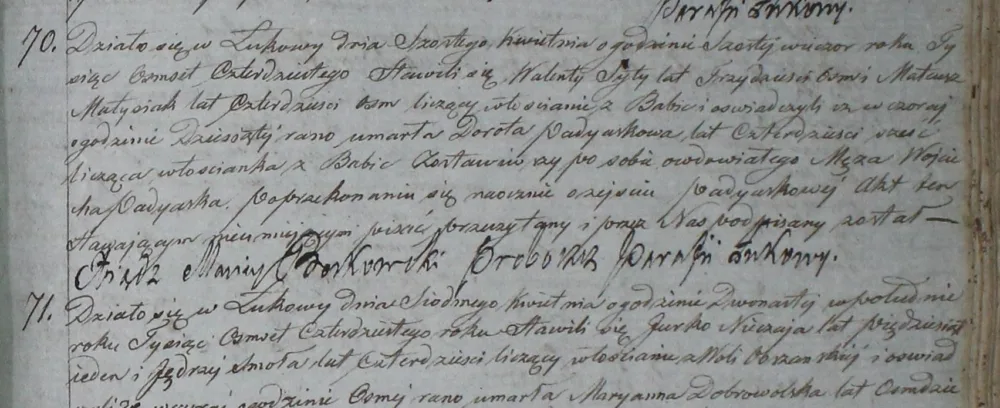 Parafii Łukowy.
70. Działo się w Łukowy dnia Szostego Kwietnia o godzinie Szostej wieczor roku Ty
siąc Osmset Czterdziestego Stawili się Walenty Syty lat Trzydziesci Osm i Mateusz
Matysiak lat Czterdziesci Osm liczący włościanie z Babic i oswiadczyli iz wczoraj
o godzinie Dziesiątej rano umarła Dorota Padyaskowa lat Czterdziesci szesć
licząca włościanka z Babic Zostawiwszy po sobie owdowiałego Męża Woycie
cha Padyaska. Po przekonaniu się naocznie o zejsciu Padyaskowej Akt ten
stawającym nieumiejącym pisać przeczytany i przez Nas podpisany został —
Xiądz Maciej Borkowski Proboszcz Parafii Łukowy.
71. Działo się w Łukowy dnia Siodmego Kwietnia o godzinie Dwonastej w południe
roku Tysiąc Osmset Czterdziestego roku Stawili się Jurko Nieczaja lat Pięćdziesiąt
ieden i Jędrzy Smoła lat Czterdziesci liczący włościanie z Woli Obszanskiej i oswiad
wczoraj o godzinie Osmej rano umarła Maryanna Dobrowolska lat Osmdzie